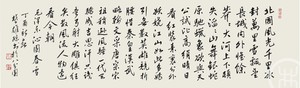 北國風光千里冰
封萬里雪飄望
長城內外惟餘
莽莽大河上下頓
失滔滔山舞銀蛇
原馳蠟象欲與天
公試比高須晴日
看紅裝素裹分外
妖嬈江山如此多嬌
引無數英雄競折
腰惜秦皇漢武
略輸文采唐宗宋
祖稍遜風騷一代天
驕成吉思汗只識
彎弓射大雕俱往
矣數風流人物還
看今朝
毛澤東沁園春雪
丁酉初秋